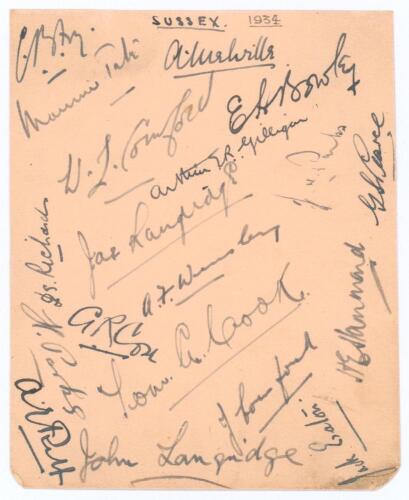 SUSSEX. 1934
C.B. Fry.
A. Melville.
Maurice Tate
E H Bowley
W. L. Cornford
Arthur E R Gilligan
J. H. Parks
G S Pearce
Jas Langridge
A. F. Wensley
G.R. Cox
Tom. G. Cook.
H E Hammond
J Cornford
Jack Eaton.
John Langridge